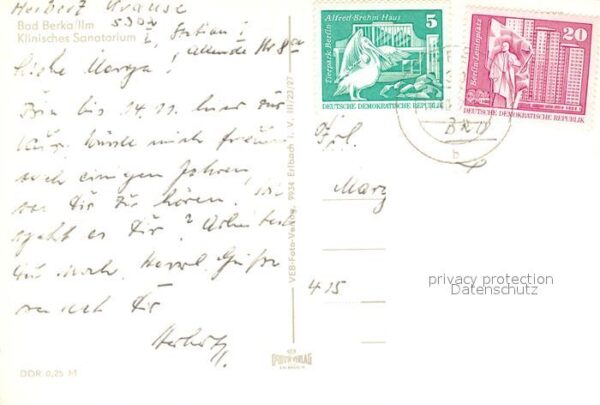 Herbert Krause
Bad Berka/Ilm
5302
Klinisches Sanatorium
I. Station
Allende Str 8a
Liebe
Bin bis 14.11. hier zur
Kur. Würde mich freuen
nach einigen Jahren,
von Dir zu hören. Wie
geht es Dir? Arbeitest
Du noch. Herzl. Grüße
Dir
Herbert
DDR 0,25 M
VEB-Foto-Verlag, 9934 Erlbach i. V. III/23/27
Alfred-Brehm-Haus
5
Tierpark Berlin
DEUTSCHE DEMOKRATISCHE REPUBLIK
20
Berlin, Leninplatz
DEUTSCHE DEMOKRATISCHE REPUBLIK
BRD
b
Frl.
415
privacy protection
Datenschutz